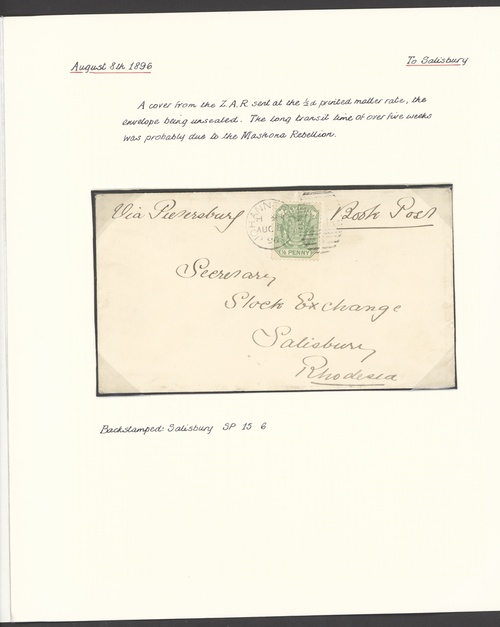 August 8th 1896
To Salisbury
A cover from the Z.A.R sent at the ½d printed matter rate, the
envelope being unsealed. The long transit time of over five weeks
was probably due to the Mashona Rebellion.
Via Pietersburg
Book Post
AUG
½ PENNY
Secretary
Stock Exchange
Salisbury
Rhodesia
Backstamped: Salisbury SP 15 6